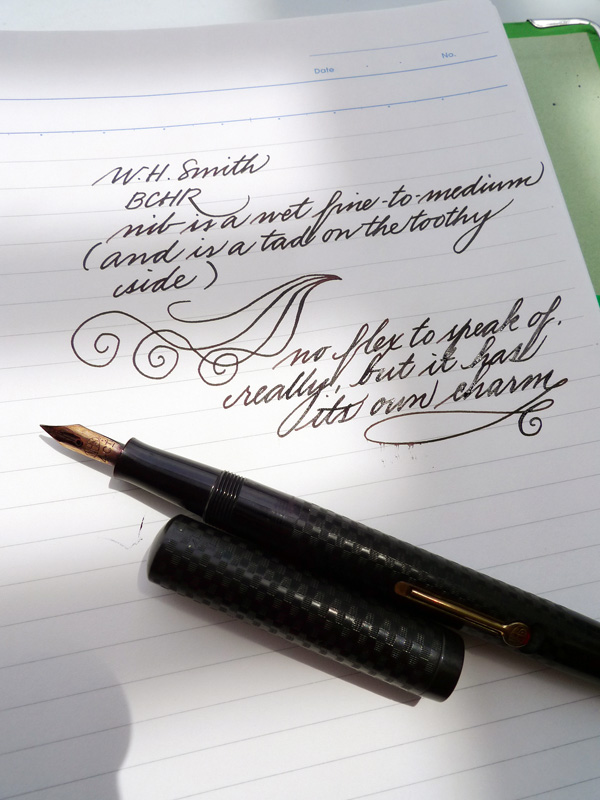 Date No.
W.H. Smith
BCHR
nib is a wet fine-to-medium
(and is a tad on the toothy
side)
no flex to speak of,
really, but it has
its own charm